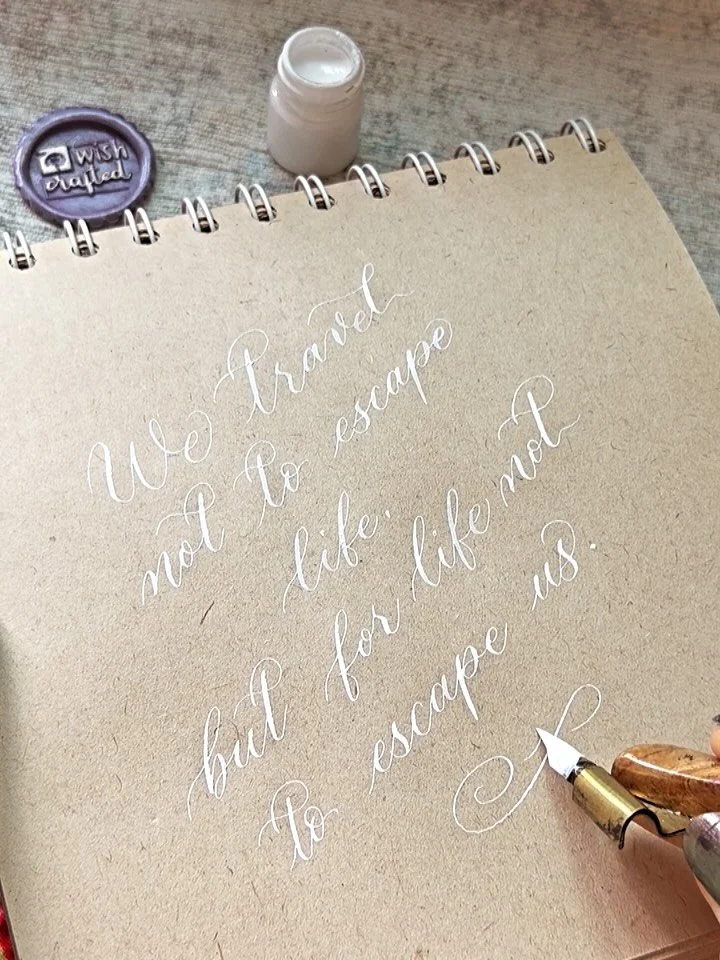 wish
crafted
We travel
not to escape
life,
but for life not
to escape us.